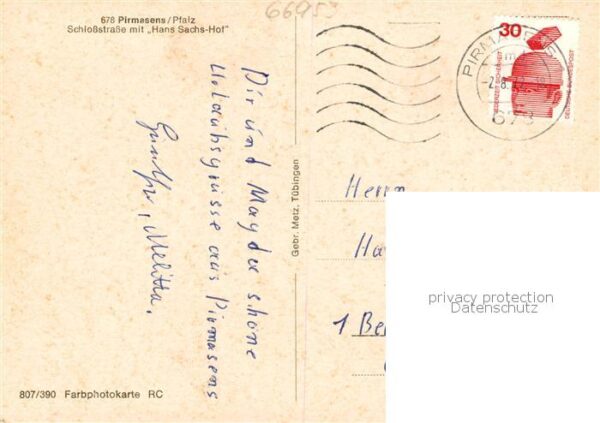 66953
678 Pirmasens/Pfalz
Schloßstraße mit „Hans Sachs-Hof"
Dir und Magda schöne
Urlaubsgrüsse aus Pirmasens
Günther, Melitta.
807/390 Farbphotokarte RC
Gebr. Metz, Tübingen
30
DEUTSCHE BUNDESPOST
PIRMASENS
678
Herrn
Ha
1 Be
privacy protection
Datenschutz